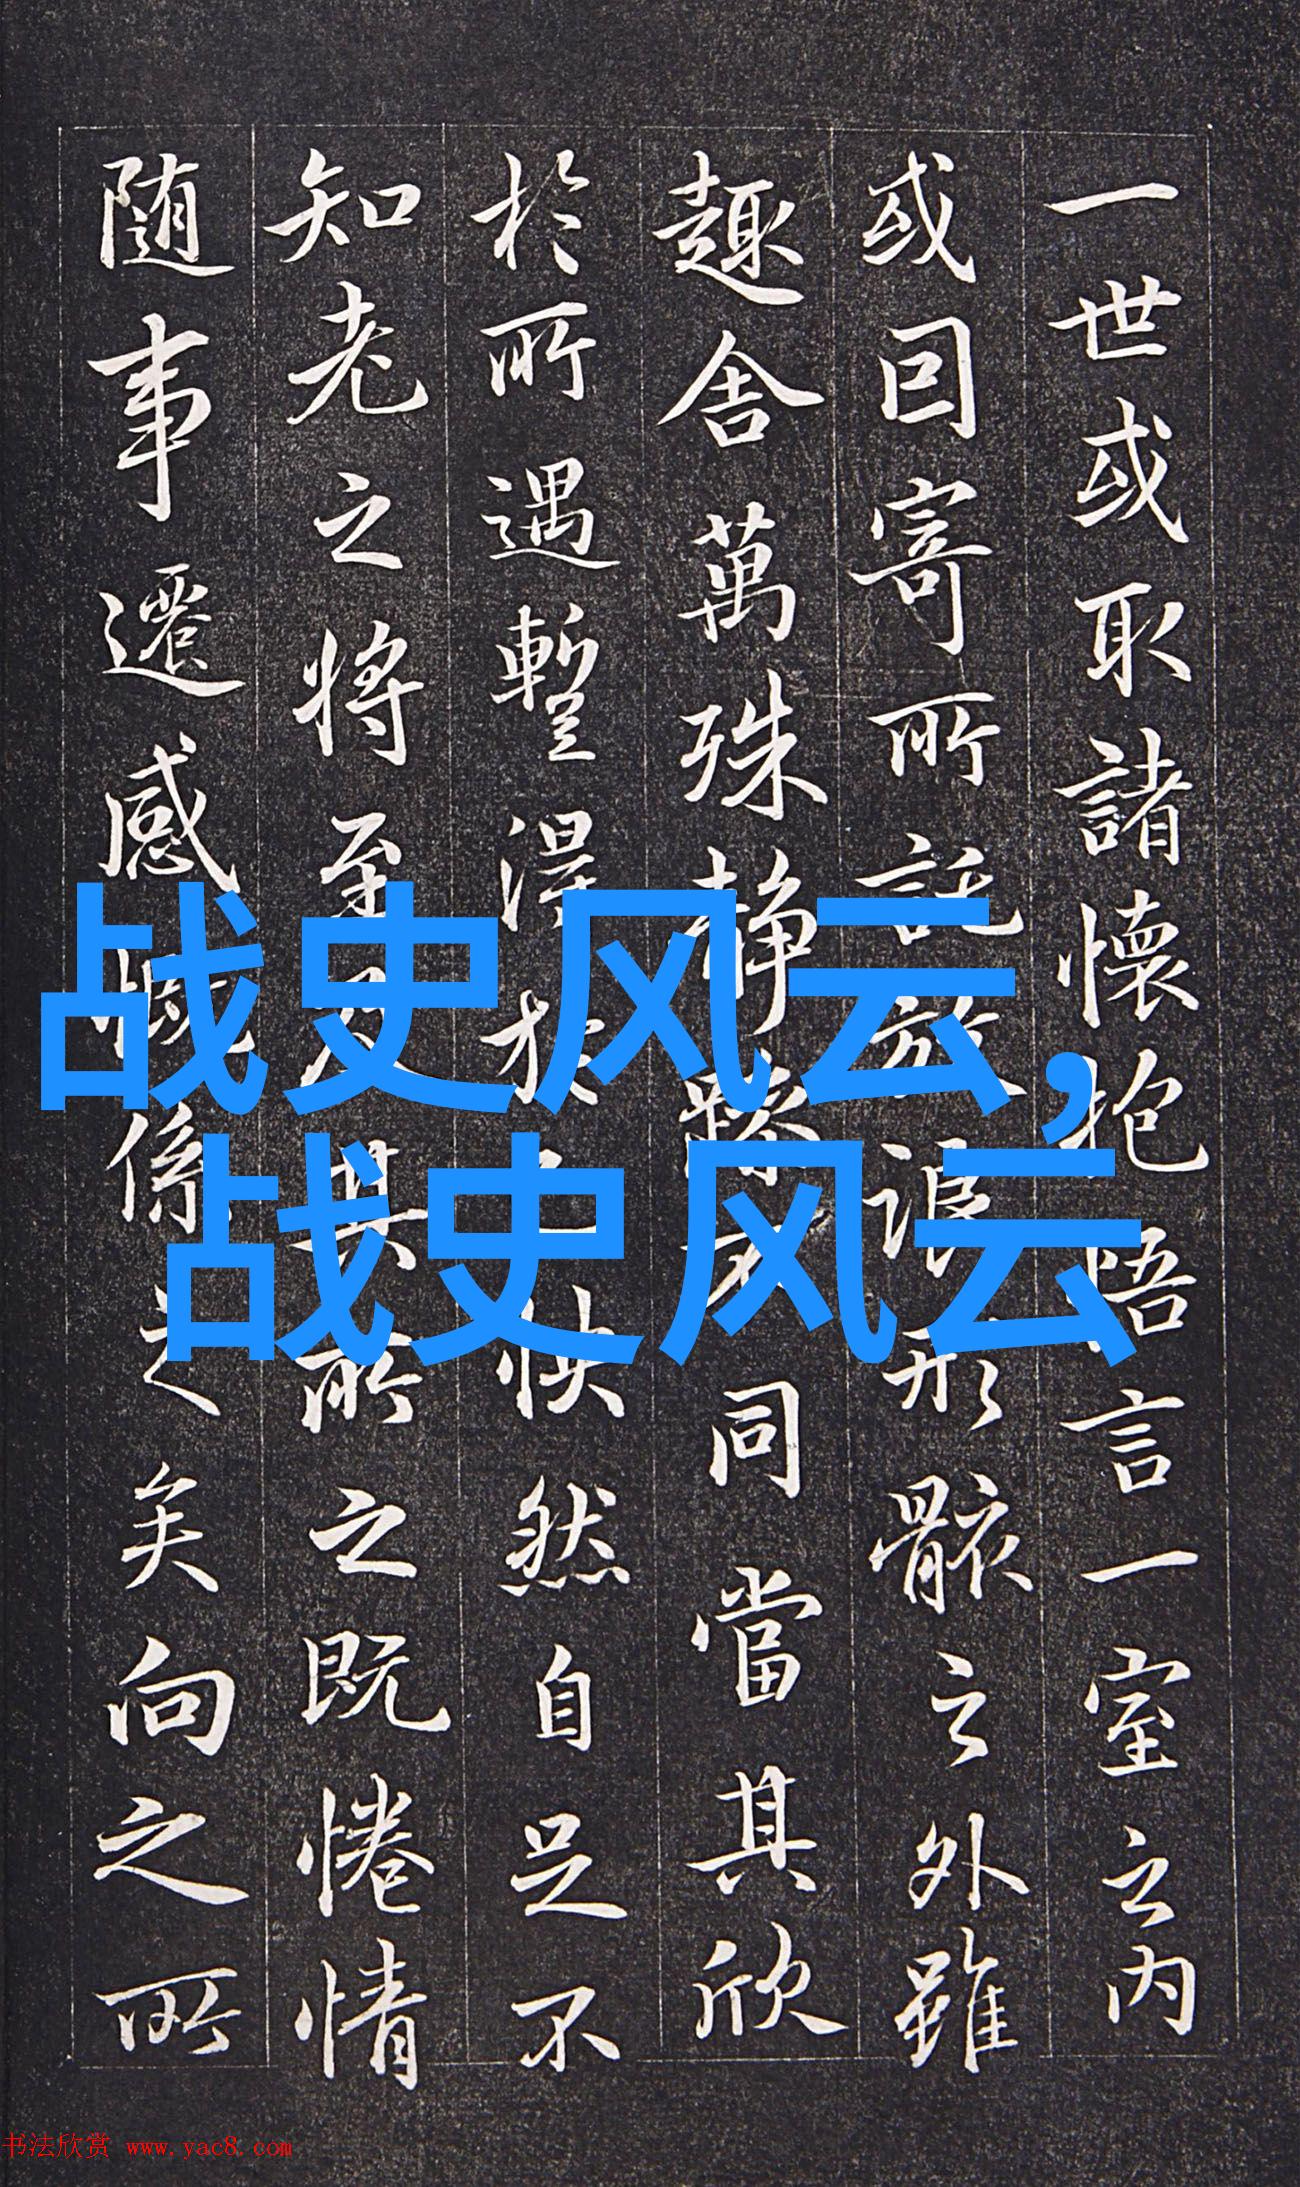 一世或取諸懷抱悟言一室之内
或因寄所託放浪形骸之外雖
趣舍萬殊静躁不同當其欣
於所遇暫得於己快然自足不
知老之将至及其所之既惓情
随事遷感慨係之矣向之所
战史风云,
战史风云
书法欣赏 www.yac8.com